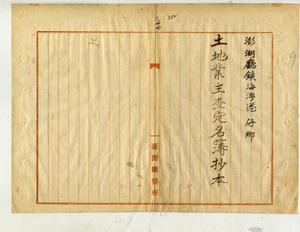 澎湖廳鎮海澳港仔鄉
土地業主查定名簿抄本
臺灣總督府